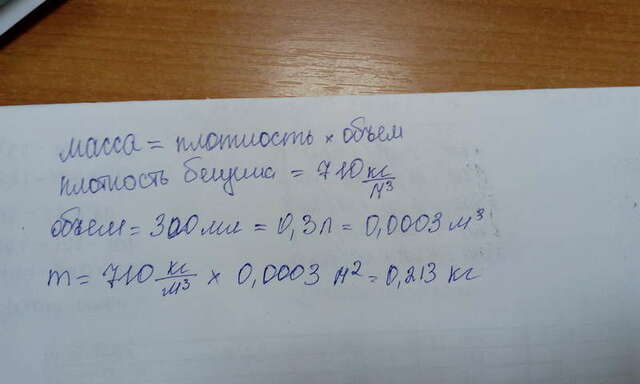 масса = плотность × объем
плотность бензина = 710 кг/м³
объем = 300 мл = 0,3 л = 0,0003 м³
m = 710 кг/м³ × 0,0003 м² = 0,213 кг